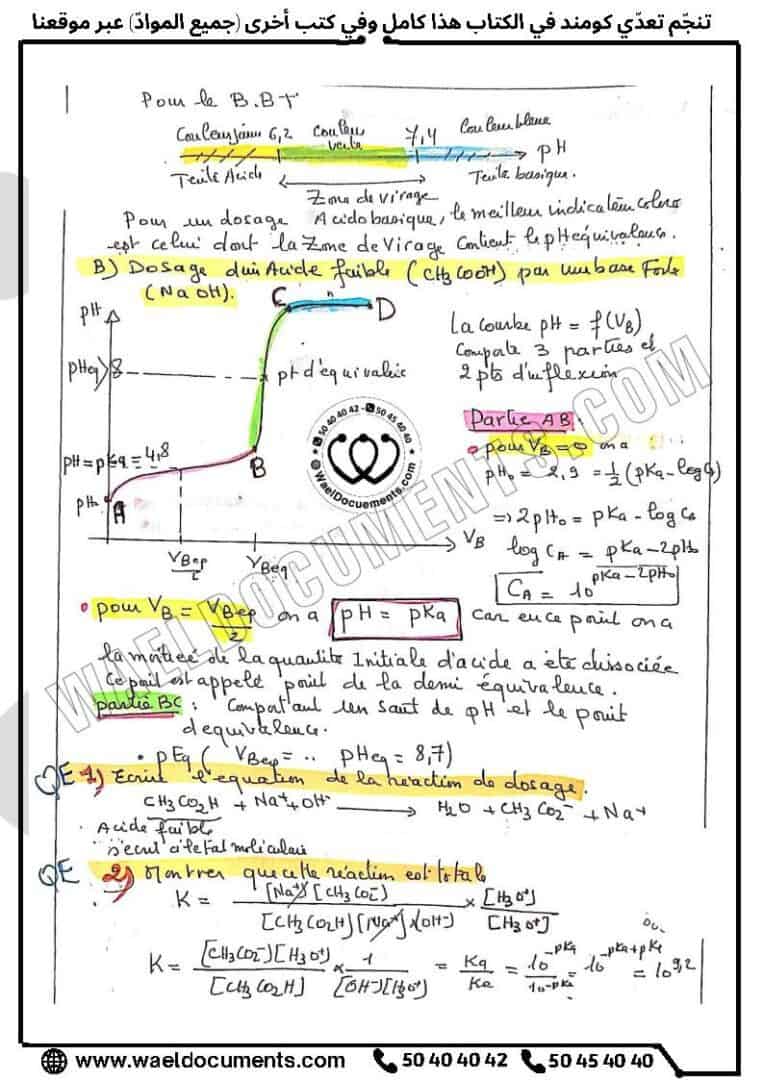 تنجّم تعدّي كومند في الكتاب هذا كامل وفي كتب أخرى (جميع الموادّ) عبر موقعنا
Pour le B.BT
Couleur jaune 6,2 Couleur verte 7,4 Couleur blaue
pH
Teute Acide Teute basique.
Zone de virage
Pour un dosage Acidobasique, le meilleur indicateur coloro
est celui dont la Zone de Virage Contient le pHequivalence.
B) Dosage d'un Acide faible (CH3COOH) par une base Forte
(NaOH).
C D
pH
La courbe pH = f(VB)
Comporte 3 parties et
2 pts d'inflexion
pHeq>8 pt d'équivalence
50 40 40 42 - 50 45 40 40
@WaelDocuements.com
WAELDOCUMENTS.COM
Partie AB:
• pour VB = 0 on a
pH0 = 2,9 = 1/2 (pKa - log CA)
pH = pKa = 4,8
B
pH0 A
=> 2pH0 = pKa - log CA
VBep/2 VBeq VB
log CA = pKa - 2pH0
CA = 10^(pKa - 2pH0)
• pour VB = VBep/2 on a pH = pKa Car en ce point on a
la moitieé de la quantite Initiale d'acide a été dissociée
Ce point est appelé point de la demi équivalence.
partie BC: Comportant un saut de pH et le point
d'equivalence.
• pEq ( VBep = .. pHeq = 8,7)
QE 1) Ecrire l'equation de la reaction de dosage.
CH3CO2H + Na+ + OH- → H2O + CH3CO2- + Na+
Acide faible
s'ecrit a l'etat moleculaire
QE 2) Montrer que cette réaction est totale
K = [Na+][CH3CO2-] / [CH3CO2H][Na+][OH-] × [H3O+] / [H3O+]
K = [CH3CO2-][H3O+] / [CH3CO2H] × 1 / [OH-][H3O+] = Ka / Ke = 10^-pKa / 10^-pKe = 10^(-pKa+pKe) = 10^9,2
www.waeldocuments.com 50 40 40 42 50 45 40 40